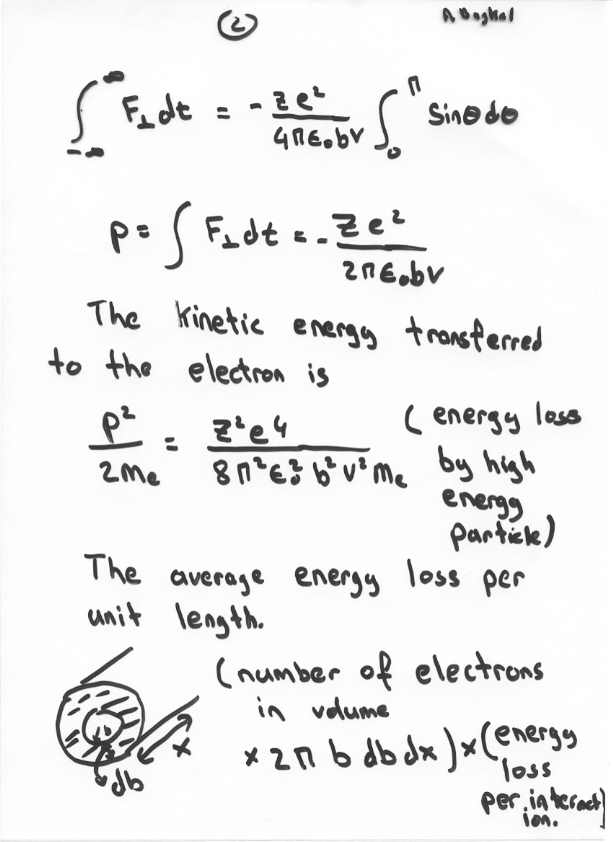 ② A Baghal
∫_{-∞}^{∞} F⊥dt = - Ze²/(4πε₀bv) ∫₀^π Sinθdθ
p = ∫ F⊥dt = - Ze²/(2πε₀bv)
The Kinetic energy transferred
to the electron is
p²/(2Me) = Z²e⁴/(8π²ε₀²b²v²Me) (energy loss
by high
energy
particle)
The average energy loss per
unit length.
(number of electrons
in volume
× 2π b db dx) × (energy
loss
per interact
ion.)
b
x
db